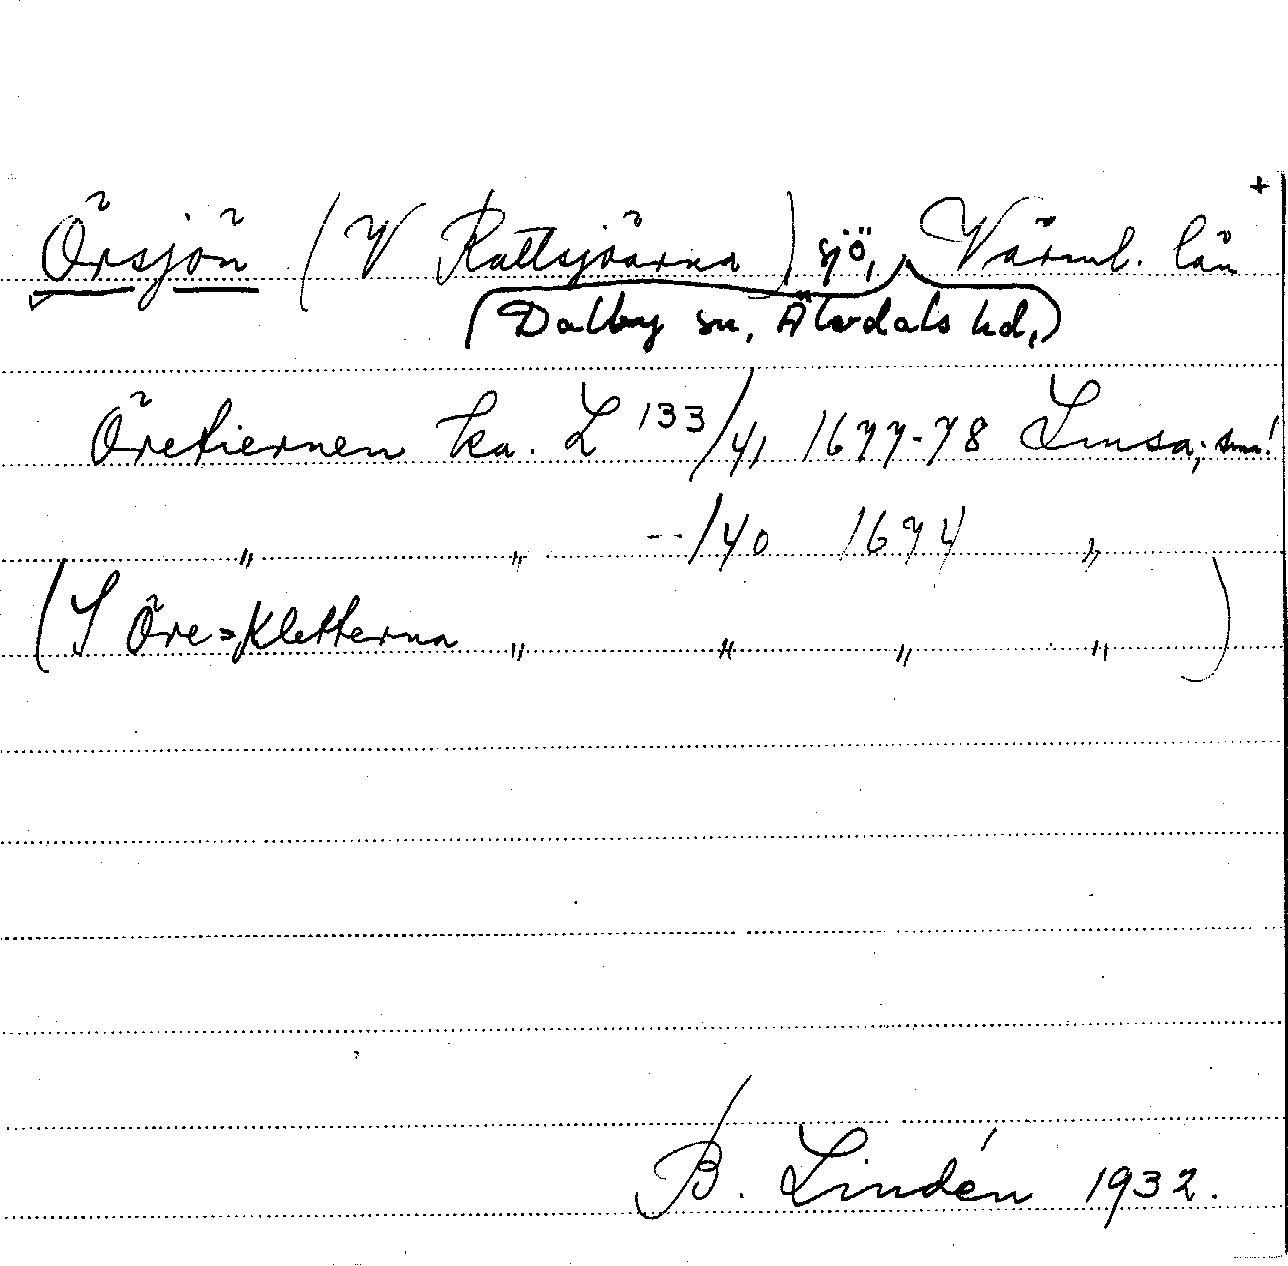 +
Örsjön (V Rattsjöarna) sjö, Värml. län
(Dalby sn, Älvdals hd,)
Öretiernen ka. L 133/41 1677-78 Lmsa; sms!
" " --/40 1674 "
(S Öre=Kletterna " " " ")
B. Lindén 1932.